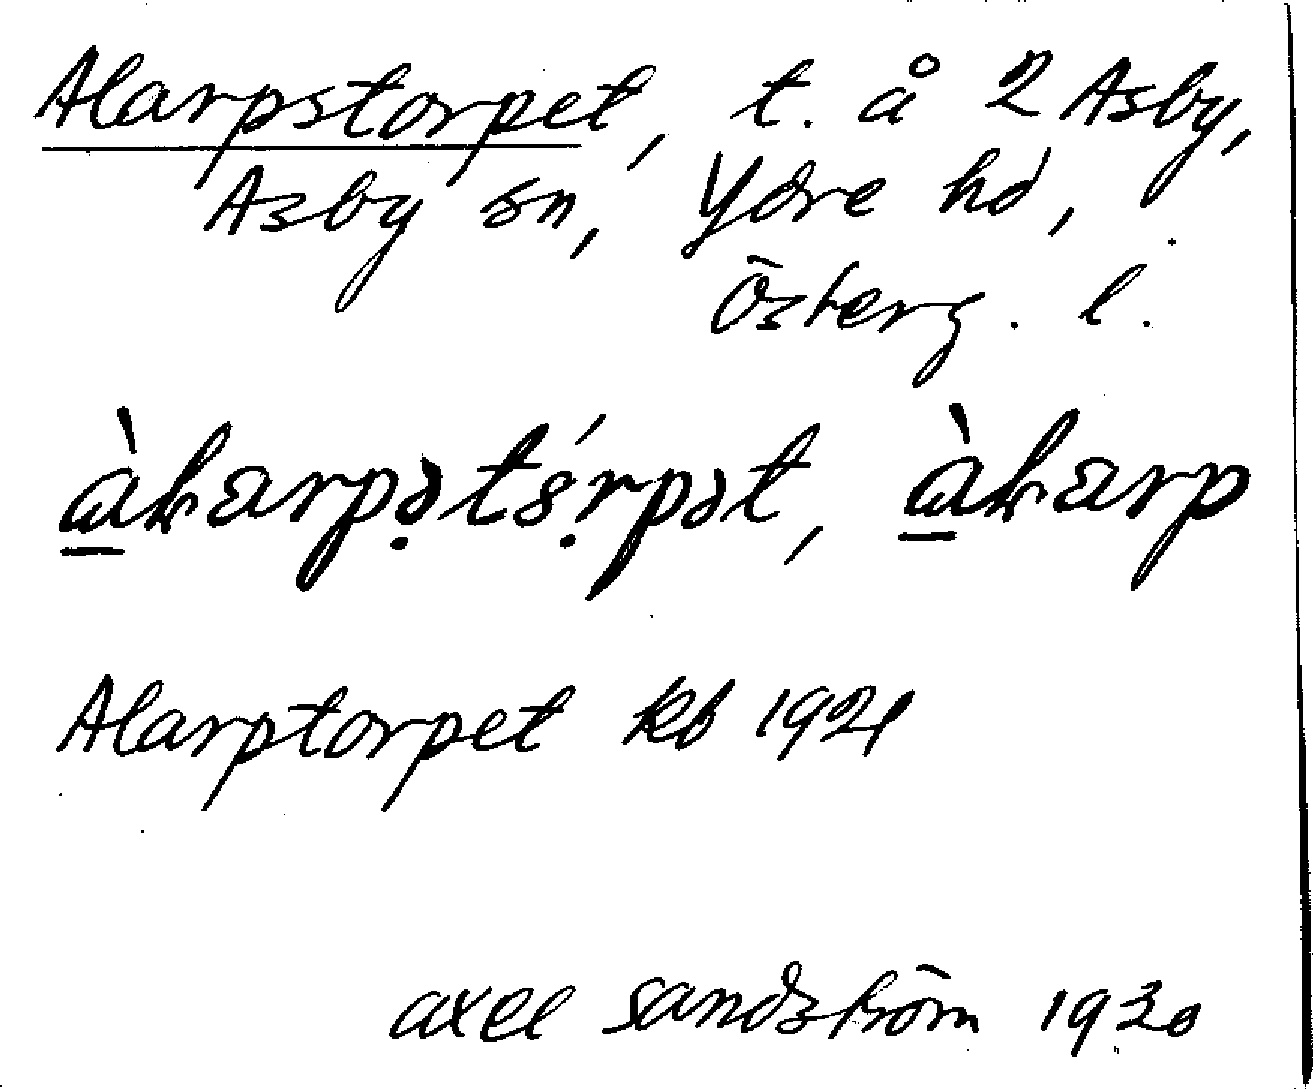 Alarpstorpet, t. å 2 Asby,
Asby sn, Ydre hd,
Österg. l.
Alarptorpet kb 1921
axel sandström 1930